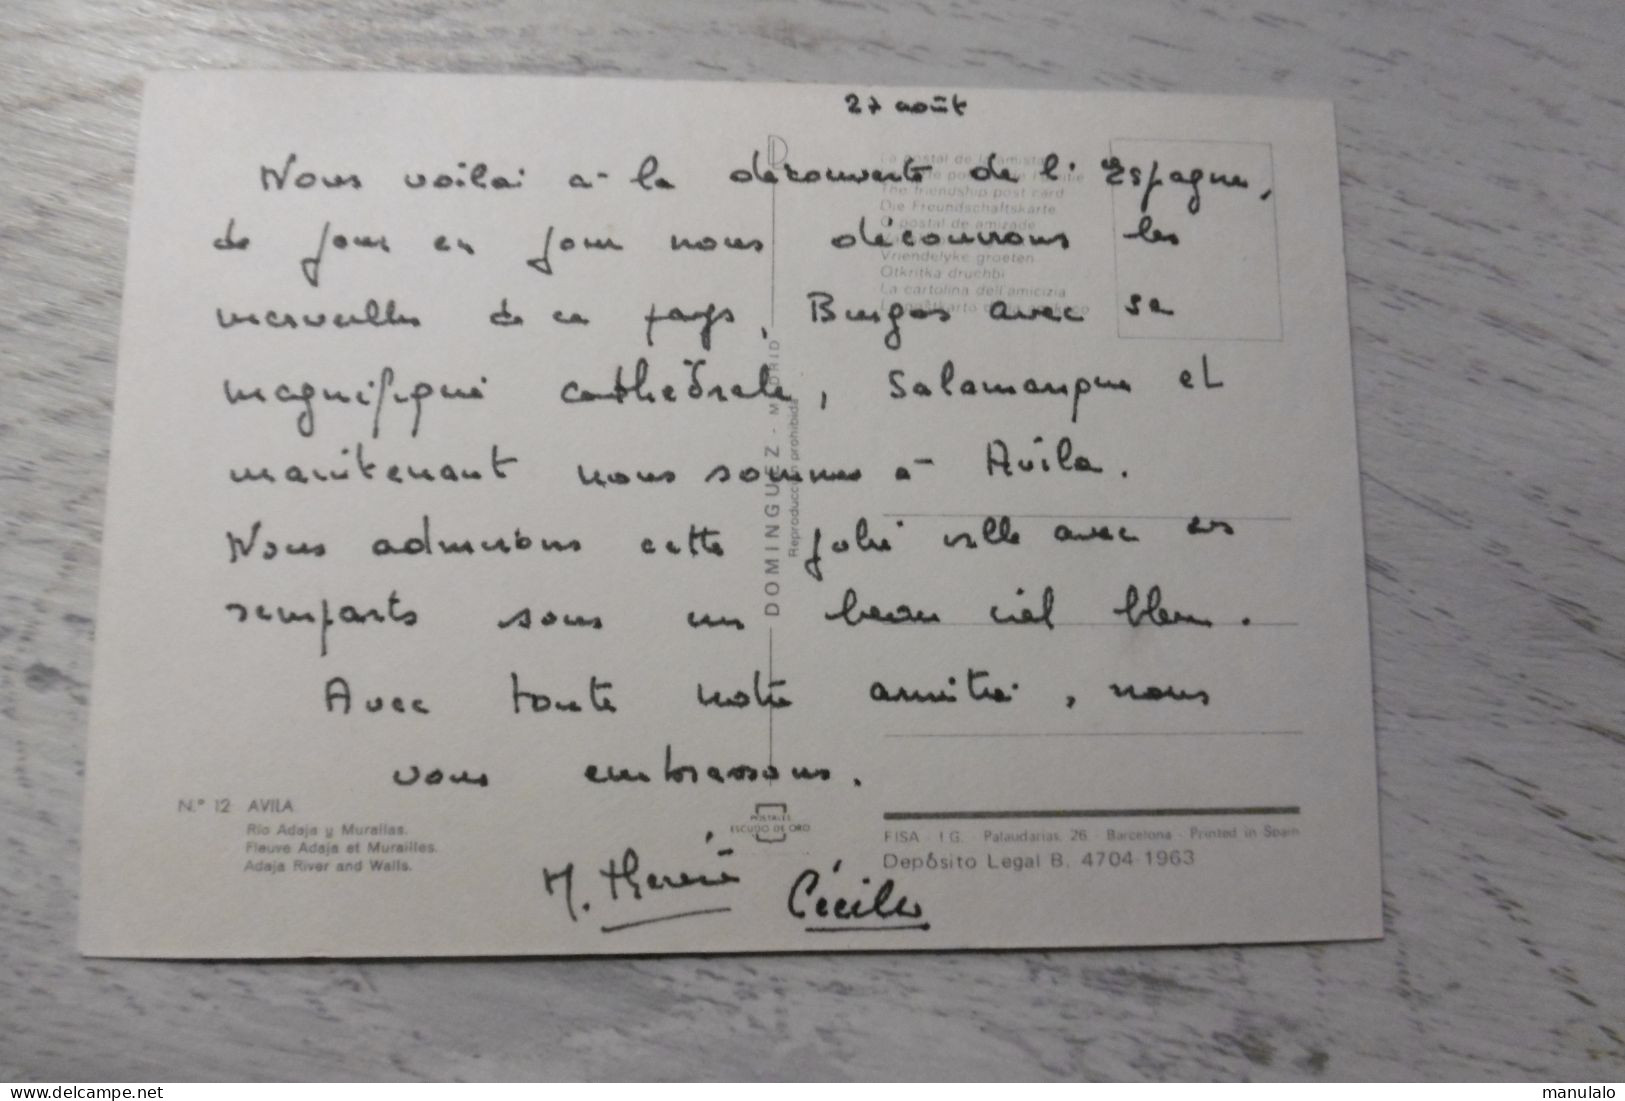 27 août
Nous voilà à la découverte de l'Espagne,
de jour en jour nous découvrons les
merveilles de ce pays, Burgos avec sa
magnifique cathédrale, Salamanque et
maintenant nous sommes à Avila.
Nous admirons cette jolie ville avec ses
remparts sous un beau ciel bleu.
Avec toute notre amitié, nous
vous embrassons.
M. Thérèse Cécile
La postal de la amistad
The friendship post card
Die Freundschaftskarte
O postal de amizade
Vriendelyke groeten
Otkritka druchbi
La cartolina dell'amicizia
DOMINGUEZ - MADRID
Reproducción prohibida
N.° 12 AVILA
Río Adaja y Murallas.
Fleuve Adaja et Murailles.
Adaja River and Walls.
POSTALES
ESCUDO DE ORO
FISA - I.G. - Palaudarias, 26 - Barcelona - Printed in Spain
Depósito Legal B. 4704-1963
www.delcampe.net
manulalo